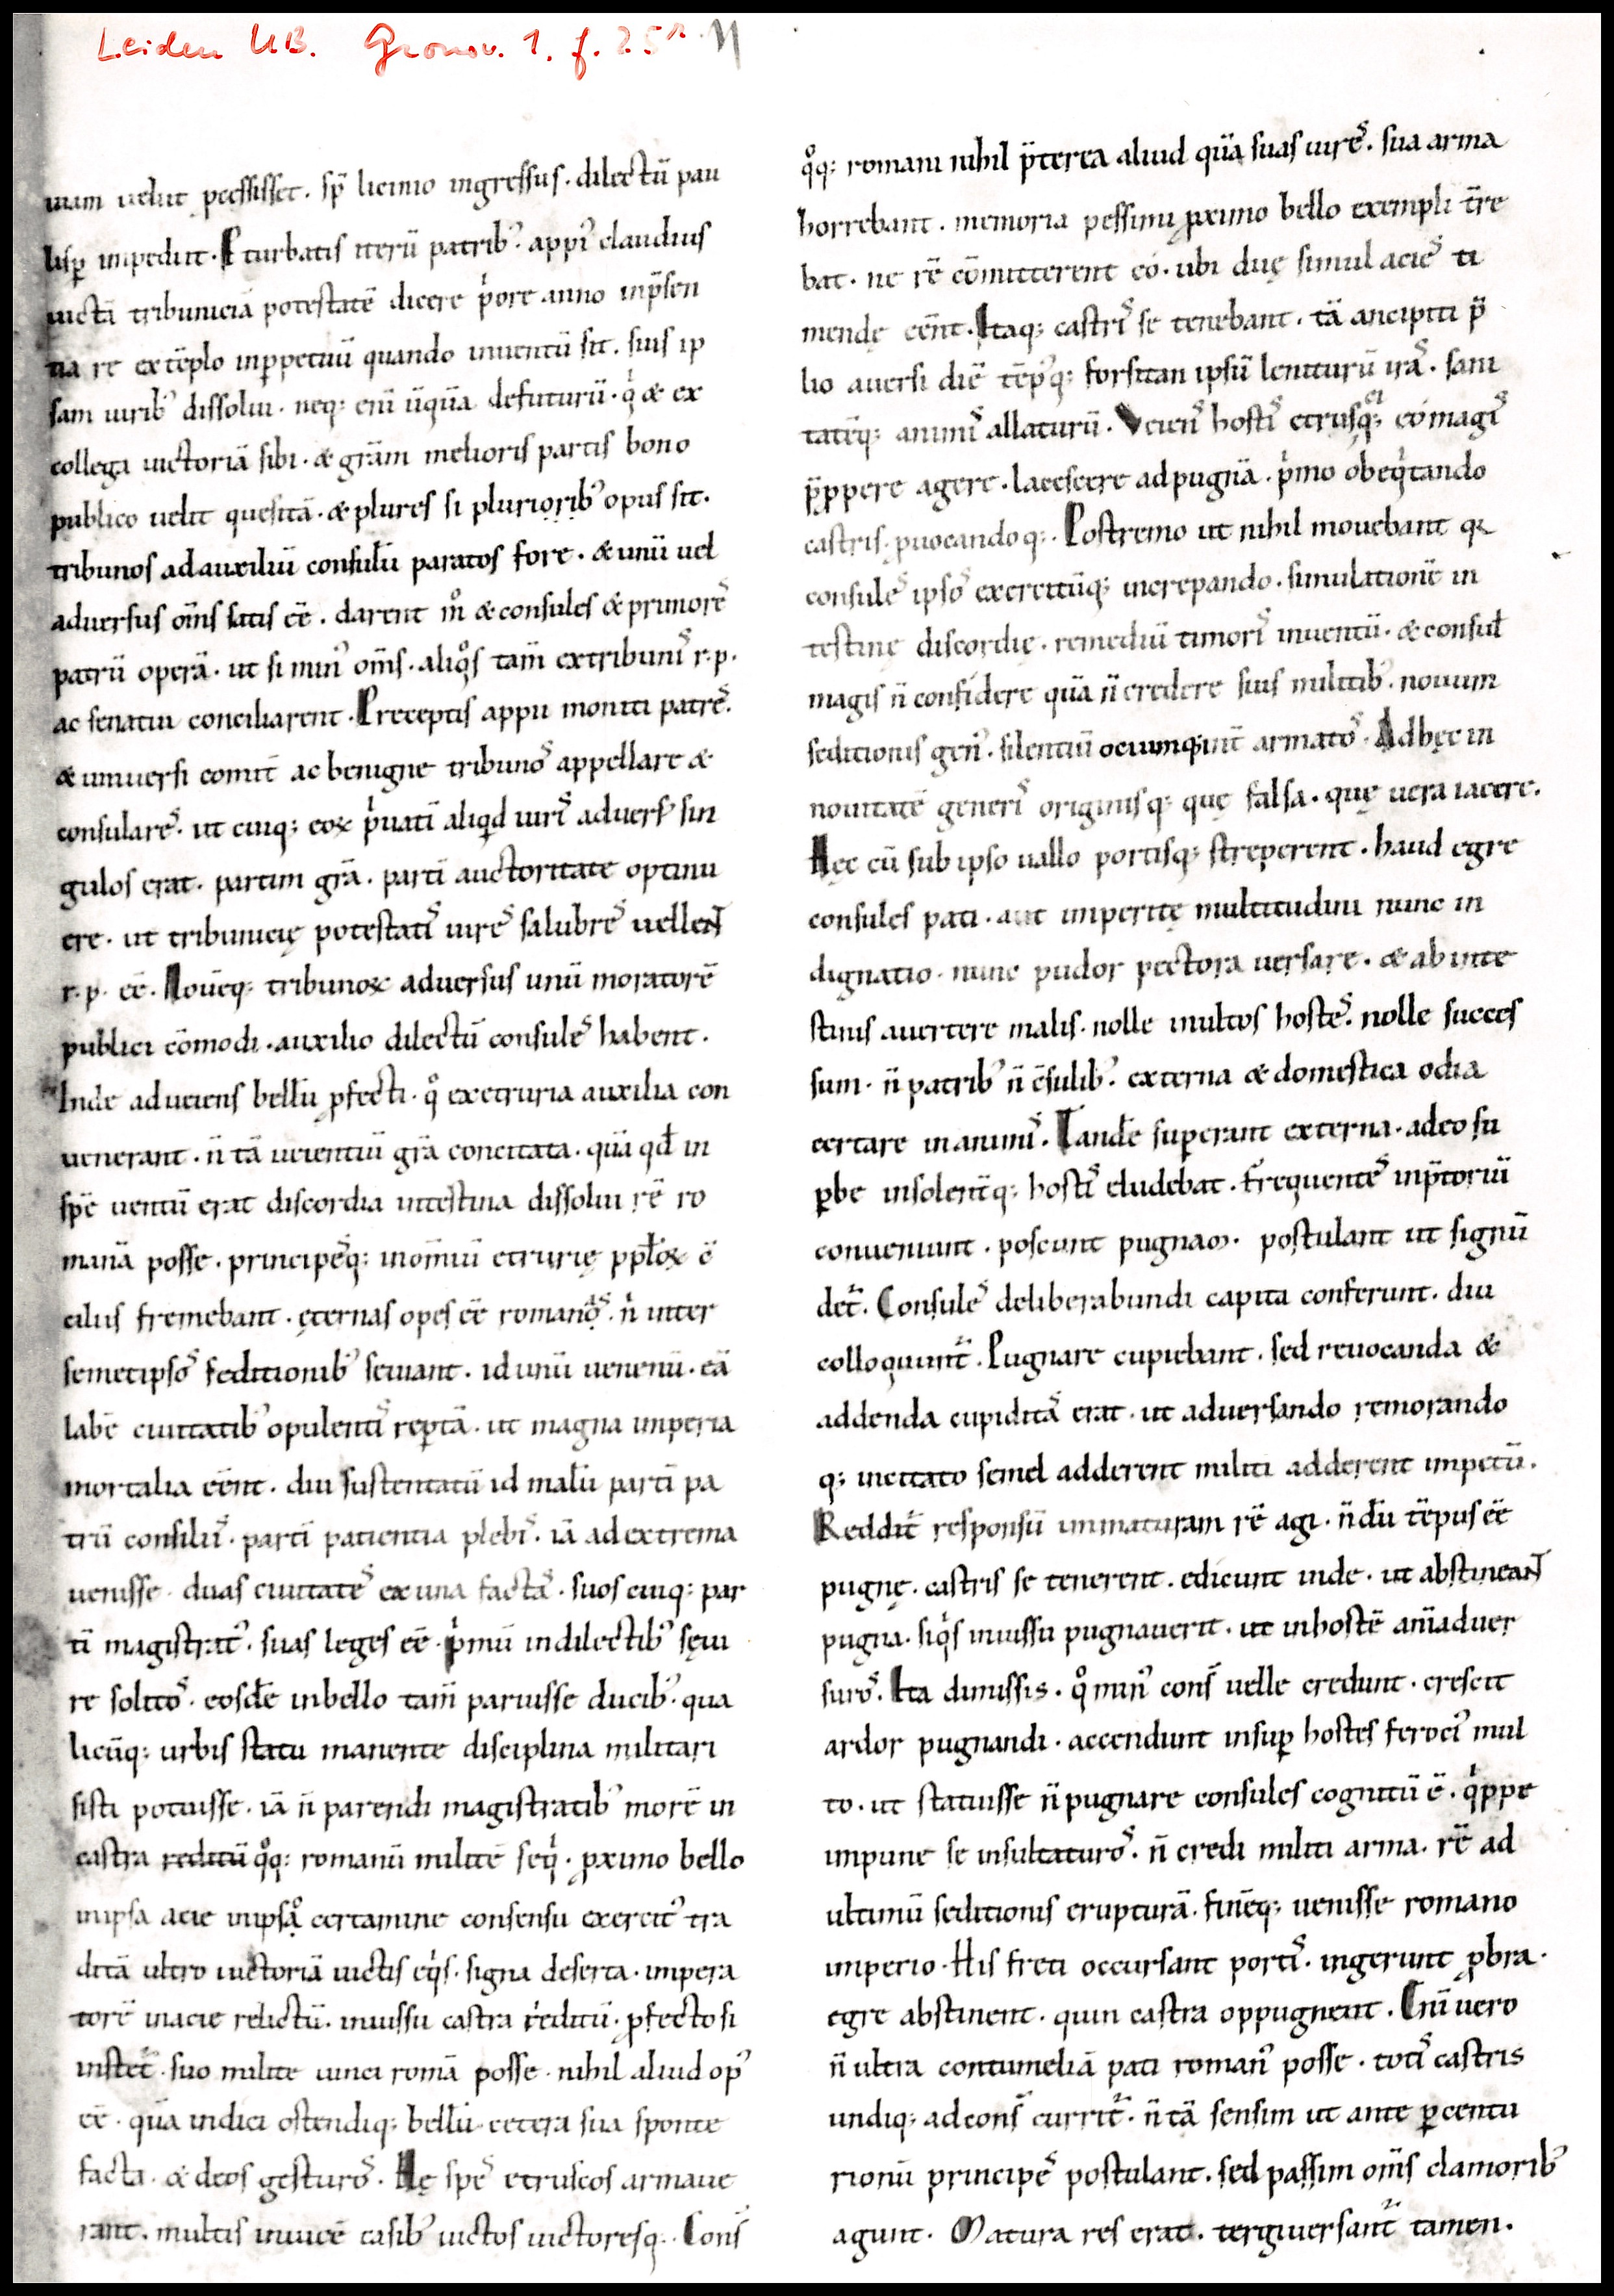 Leiden UB. Gronov. 1. f. 25r
uiam uelut pcessisset. spͥ licinio ingressus. dilectū pau
lisp̱ impediit. Et turbatis iterū patrib᾽. appi᾽ claudius
uictā tribuniciā potestatē dicere pͥore anno inp̄sen
tia re extēplo inp̱petuū quando inuentū sit. suis ip
sam uirib᾽ dissolui. neq; eni ūquā defuturū. qͥ & ex
collega uictoriā sibi. & gr̄am melioris partis bono
publico uelit quesitā. & plures si plurioribꝰ opus sit.
tribunos adauxiliū consulū paratos fore. & unū uel
aduersus om̄s satis eē. darent m̊ & consules & primorē᾽
patrū operā. ut si min᾽ om̄s. aliqͦs tam̄ extribuni᾽ r.p.
ac senatui conciliarent. Preceptis appii moniti patre᾽.
& uniuersi comit̄ ac benigne tribuno᾽ appellare &
consulare᾽. ut cuiq; eoꝝ pͥuatī aliqd iuri᾽ aduers᾽ sin
gulos erat. partim gr̄a. partī auctoritate optinu
ere. ut tribunicię potestati᾽ uire᾽ salubre᾽ uelleNT
r.p. eē. Nouēq; tribunoꝝ aduersus unū moratorē
publici cōmodi. auxilio dilectū consule᾽ habent.
Inde adueiens bellū ꝓfecti. qͦ exetruria auxilia con
uenerant. n̄ tā ueientiū gr̄a concitata. quā qd̄ in
spē uentū erat discordia intestina dissolui rē ro
manā posse. principēq; inom̄iū etrurię pp̄loꝝ c̄
ciliis fremebant. ęternas opes eē romano᾽. nͥ inter
semetipso᾽ seditionib᾽ seuiant. id unū uenenū. eā
labē ciuitatib᾽ opulenti᾽ rep̱tā. ut magna imperia
mortalia eēnt. diu sustentatū id malū partī pa
trū consilii᾽. partī patientia plebi᾽. iā adextrema
uenisse. duas ciuitate᾽ ex una facta᾽. suos cuiq; par
ti magistrat᾽. suas leges eē. pͥmū indilectib᾽ sęui
re solito᾽. eosdē inbello tam̄ paruisse ducib᾽. qua
licūq; urbis statu manente disciplina militari
sisti potuisse. iā n̄ parendi magistratib᾽ morē in
castra reditū qͦq; romanū militē seqͥ. ꝓximo bello
inipsa acie inipsoͦ certamine consensu exercit᾽ tra
ditā ultro uictoriā uictis eqͥs. signa deserta. impera
torē inacie relictū. iniussu castra reditū. ꝓfecto si
instet᷑. suo milite uinci romā posse. nihil aliud op᾽
eē. quā indici ostendiq; bellū. cetera sua sponte
facta. & deos gesturo᾽. Hę spe᾽ etruscos armaue
rant. multis inuicē casib᾽ uictos uictoresq. Cons̄
qͦq; romani nihil p̄terea aliud quā suas uire᾽. sua arma
horrebant. memoria pessimi ꝓximo bello exempli tr̄re
bat. ne rē cōmitterent eó. ubi duę simul acie᾽ ti
mendę eēnt. Itaq; castri᾽ se tenebant. tā ancipiti p̄
lio auersi diē tēp᾽q; forsitan ipsū leniturū ira᾽. sani
tatēq; animi᾽ allaturū. Veien᾽ hosti᾽ etrusq; eómagi᾽
p̄ꝓpere agere. lacescere adpugnā. pͥmo obeqͥtando
castris. ꝓuocandoq;. Postremo ut nihil mouebant qꝫ
consule᾽ ipso᾽ exercitūq; increpando. simulationē in
testinę discordię. remediū timori᾽ inuentū. & consul̄
magis n̄ confidere quā n̄ credere suis militib᾽. nouum
seditionis gen᾽. silentiū ociumq; int̄ armato᾽. Adhęc in
nouitatē generi᾽ originisq; quę falsa. quę uera iacere.
Hęc cū sub ipso uallo portisq; streperent. haud egre
consules pati. aut imperitę multitudini nunc in
dignatio. nunc pudor pectora uersare. & ab inte
stinis auertere malis. nolle inultos hoste᾽. nolle succes
sum. n̄ patrib᾽ n̄ c̄sulib᾽. externa & domestica odia
certare inanimi᾽. Tandē superant externa. adeo su
p̱be insolentēq; hosti᾽ eludebat. frequente᾽ inp̄toriū
conueniunt. poscunt pugnam. postulant ut signū
det᷑. Consule᾽ deliberabundi capita conferunt. diu
colloquunt᷑. Pugnare cupiebant. sed reuocanda &
addenda cupidita᾽ erat. ut aduersando remorando
q; incitato semel adderent militi adderent impetū.
Reddit᷑ responsū immaturam rē agi. n̄dū tēpus eē
pugnę. castris se tenerent. edicunt inde. ut abstineaNT
pugna. siqͥs iniussu pugnauerit. ut inhostē anīaduer
suro᾽. Ita dimissis. qͦ min᾽ cons̄ uelle credunt. crescit
ardor pugnandi. accendunt insup̱ hostes feroci᾽ mul
to. ut statuisse n̄ pugnare consules cognitū ē. qͥppe
impune se insultaturo᾽. n̄ credi militi arma. rē ad
ultimū seditionis erupturā. finēq; uenisse romano
imperio. His freti occursant porti᾽. ingerunt ꝓbra.
egre abstinent. quin castra oppugnent. Eni uero
n̄ ultra contumeliā pati roman᾽ posse. toti᾽ castris
undiq; adcons̄ currit᷑. n̄ tā sensim ut ante p̱centu
rionū principe᾽ postulant. sed passim om̄s clamorib᾽
agunt. Matura res erat. tergiuersant᷑ tamen.